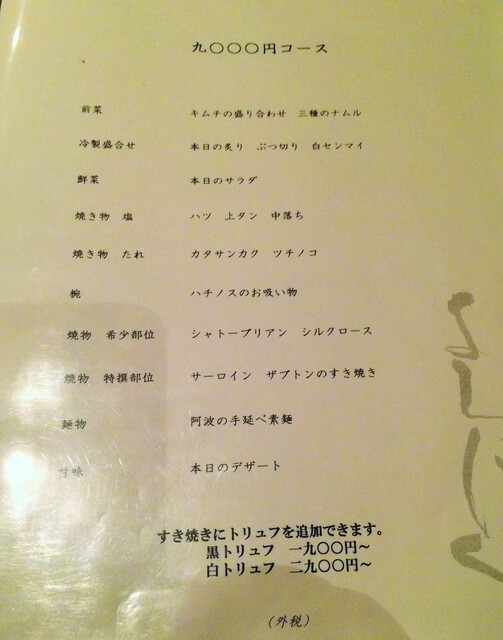 九〇〇〇円コース
前菜 キムチの盛り合わせ 三種のナムル
冷製盛合せ 本日の炙り ぶつ切り 白センマイ
鮮菜 本日のサラダ
焼き物 塩 ハツ 上タン 中落ち
焼き物 たれ カタサンカク ツチノコ
椀 ハチノスのお吸い物
焼物 希少部位 シャトーブリアン シルクロース
焼物 特撰部位 サーロイン ザブトンのすき焼き
麺物 阿波の手延べ素麺
甘味 本日のデザート
すき焼きにトリュフを追加できます。
黒トリュフ 一九〇〇円〜
白トリュフ 二九〇〇円〜
(外税)